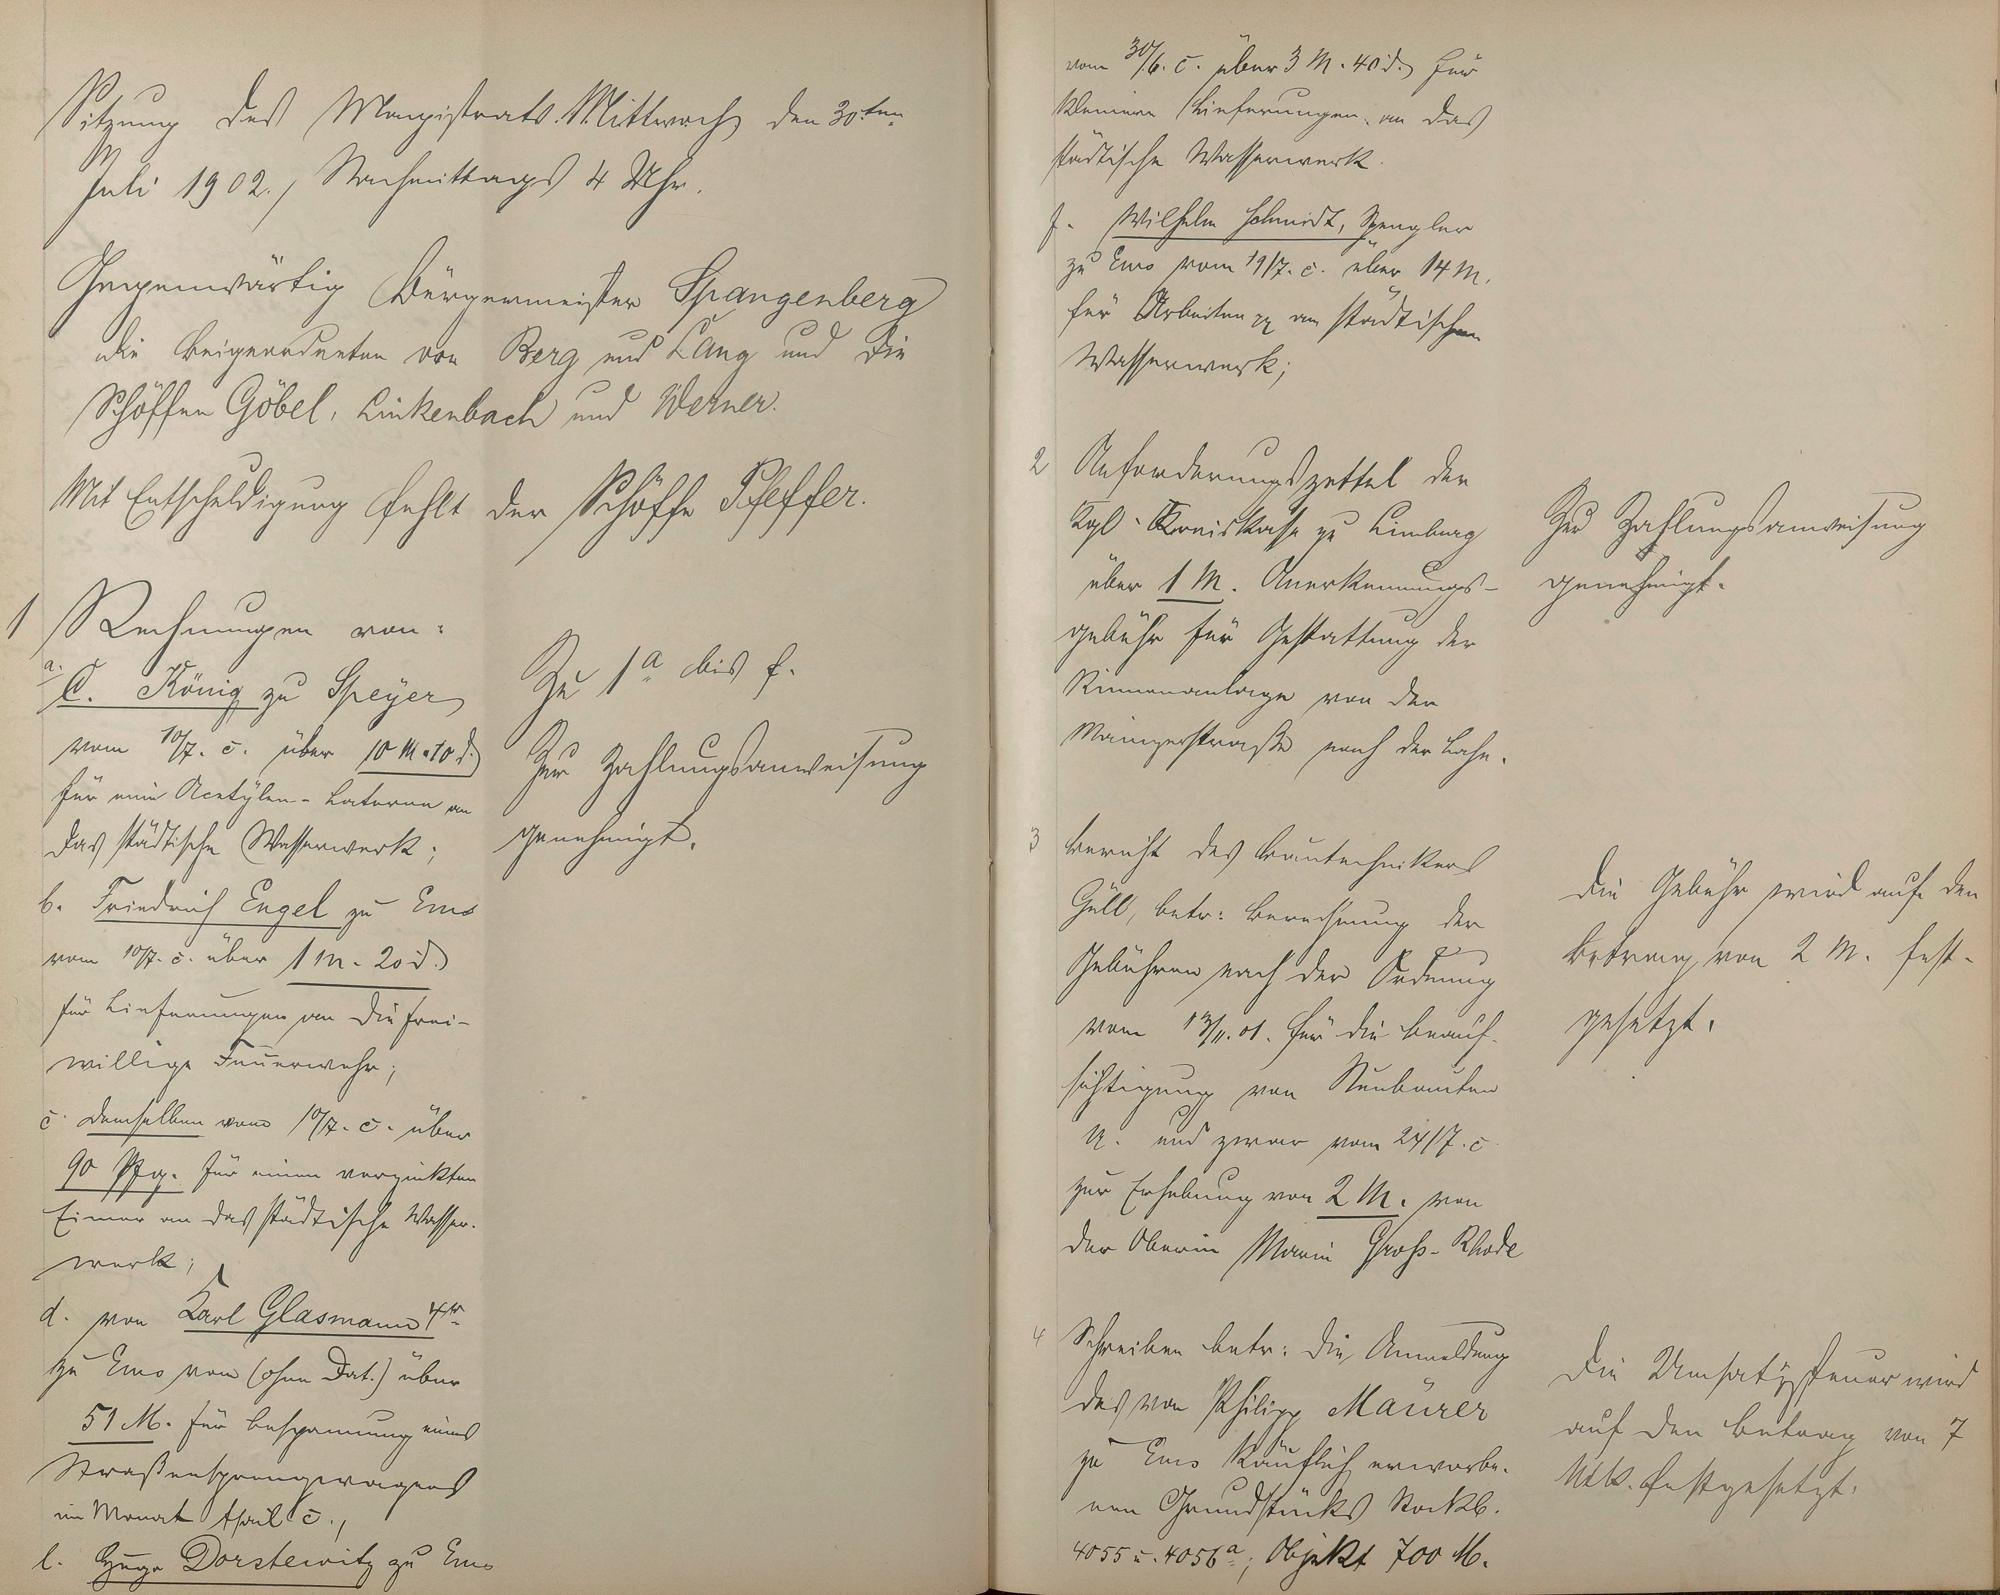 Sitzung des Magistrats Mittwoch, den 30ten
Juli 1902, Nachmittags 4 Uhr.
Gegenwärtig Bürgermeister Spangenberg
die Beigeordneten von Berg und Lang und die
Schöffen Göbel, Linkenbach und Werner.
Mit Entschuldigung fehlt der Schöffe Pfeffer.
1 Rechnungen von:
a. C. König zu Speyer
vom 10/7. c. über 10 M. 10 d.
für eine Acetylen-Laterne an
das städtische Wasserwerk;
b. Friedrich Engel zu Ems
vom 10/7. c. über 1 M. 20 d.
für Lieferungen an die frei-
willige Feuerwehr;
c. demselben vom 10/7. c. über
90 Pfg. für einen verzinkten
Eimer an das städtische Wasser-
werk;
d. von Karl Glasmann 4r
zu Ems vom (ohne Dat.) über
51 M. für Bespannung eines
Straßensprengwagens
im Monat April c.,
e. Hugo Dorstewitz zu Ems
Zu 1a bis f.
Zur Zahlungsanweisung
genehmigt.
vom 30/6. c. über 3 M. 40 d. für
kleinere Lieferungen an das
städtische Wasserwerk.
f. Wilhelm Schmidt, Spengler
zu Ems vom 19/7. c. über 14 M.
für Arbeiten pp am städtischen
Wasserwerk;
2 Anforderungszettel der
Kgl. Kreiskasse zu Limburg
über 1 M. Anerkennungs-
gebühr für Gestattung der
Rinnenanlage von der
Mainzerstraße nach der Lahn.
Zur Zahlungsanweisung
genehmigt.
3 Bericht des Bautechnikers
Güll, betr: Berechnung der
Gebühren nach der Ordnung
vom 13/11. 01. für die Beauf-
sichtigung von Neubauten
u. und zwar vom 24/7. c.
zur Erhebung von 2 M. von
der Oberin Maria Groß-Rhode
Die Gebühr wird auf den
Betrag von 2 M. fest-
gesetzt.
4 Schreiben betr: die Anmeldung
des von Philipp Maurer
zu Ems käuflich erworbe-
nen Grundstücks Stockb.
4055 u. 4056a; Objekt 700 M.
Die Umsatzsteuer wird
auf den Betrag von 7
Mk. festgesetzt.